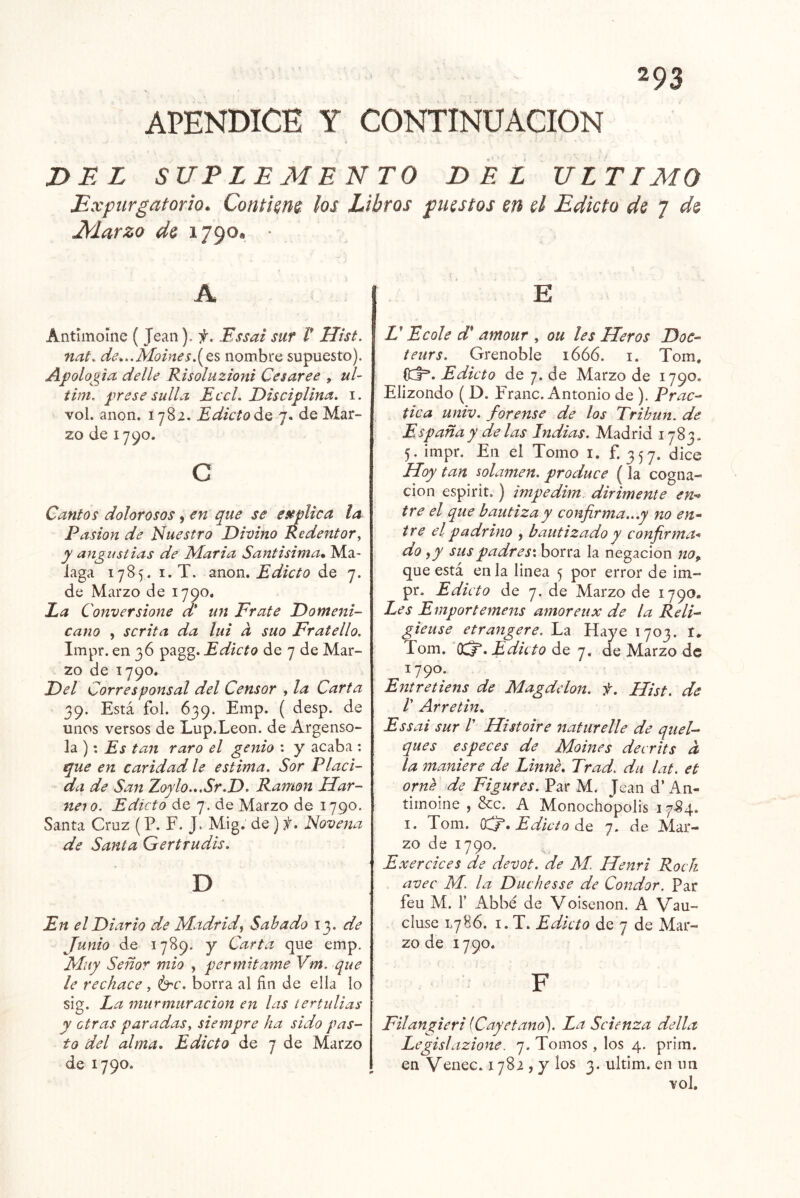 293
APENDICE Y CONTINUACION
DEL SUPLEMENTO DEL ULTIMO
Expurgatorio. Contiene los Libros puestos en el Edicto de 7 de
Marzo de 1790.
A
Antimoine ( Jean ). ꝟ. Essai sur l' Hist.
nat. de...Moines.(es nombre supuesto).
Apologia delle Risoluzioni Cesaree , ul-
tim. prese sulla Eccl. Disciplina. 1.
vol. anon. 1782. Edicto de 7. de Mar-
zo de 1790.
C
Cantos dolorosos , en que se explica la
Pasion de Nuestro Divino Redentor,
y angustias de Maria Santisima. Ma-
laga 1785. 1. T. anon. Edicto de 7.
de Marzo de 1790.
La Conversione d' un Frate Domeni-
cano , scrita da lui à suo Fratello.
Impr. en 36 pagg. Edicto de 7 de Mar-
zo de 1790.
Del Corresponsal del Censor , la Carta
39. Está fol. 639. Emp. ( desp. de
unos versos de Lup.Leon. de Argenso-
la ) : Es tan raro el genio : y acaba :
que en caridad le estima. Sor Placi-
da de San Zoylo...Sr.D. Ramon Har-
nero. Edicto de 7. de Marzo de 1790.
Santa Cruz ( P. F. J. Mig. de ) ꝟ. Novena
de Santa Gertrudis.
D
En el Diario de Madrid, Sabado 13. de
Junio de 1789. y Carta que emp.
Muy Señor mio , permitame Vm. que
le rechace , &c. borra al fin de ella lo
sig. La murmuracion en las tertulias
y otras paradas, siempre ha sido pas-
to del alma. Edicto de 7 de Marzo
de 1790.
E
L' Ecole d' amour , ou les Heros Doc-
teurs. Grenoble 1666. 1. Tom.
☞. Edicto de 7. de Marzo de 1790.
Elizondo ( D. Franc. Antonio de ). Prac-
tica univ. forense de los Tribun. de
España y de las Indias. Madrid 1783.
5. impr. En el Tomo 1. f. 357. dice
Hoy tan solamen. produce ( la cogna-
cion espirit. ) impedim. dirimente en-
tre el que bautiza y confirma...y no en-
tre el padrino , bautizado y confirma-
do ,y sus padres: borra la negacion no,
que está en la linea 5 por error de im-
pr. Edicto de 7. de Marzo de 1790.
Les Emportemens amoreux de la Reli-
gieuse etrangere. La Haye 1703. 1.
Tom. ☞. Edicto de 7. de Marzo de
1790.
Entretiens de Magdelon. ꝟ. Hist. de
l' Arretin.
Essai sur l' Histoire naturelle de quel-
ques especes de Moines decrits à
la maniere de Linnè. Trad. du lat. et
ornè de Figures. Par M. Jean d' An-
timoine , &c. A Monochopolis 1784.
1. Tom. ☞. Edicto de 7. de Mar-
zo de 1790.
Exercices de devot. de M. Henri Roch
avec M. la Duchesse de Condor. Par
feu M. l' Abbé de Voisenon. A Vau-
cluse 1786. 1. T. Edicto de 7 de Mar-
zo de 1790.
F
Filangieri (Cayetano). La Scienza della
Legislazione. 7. Tomos , los 4. prim.
en Venec. 1782 , y los 3. ultim. en un
vol.